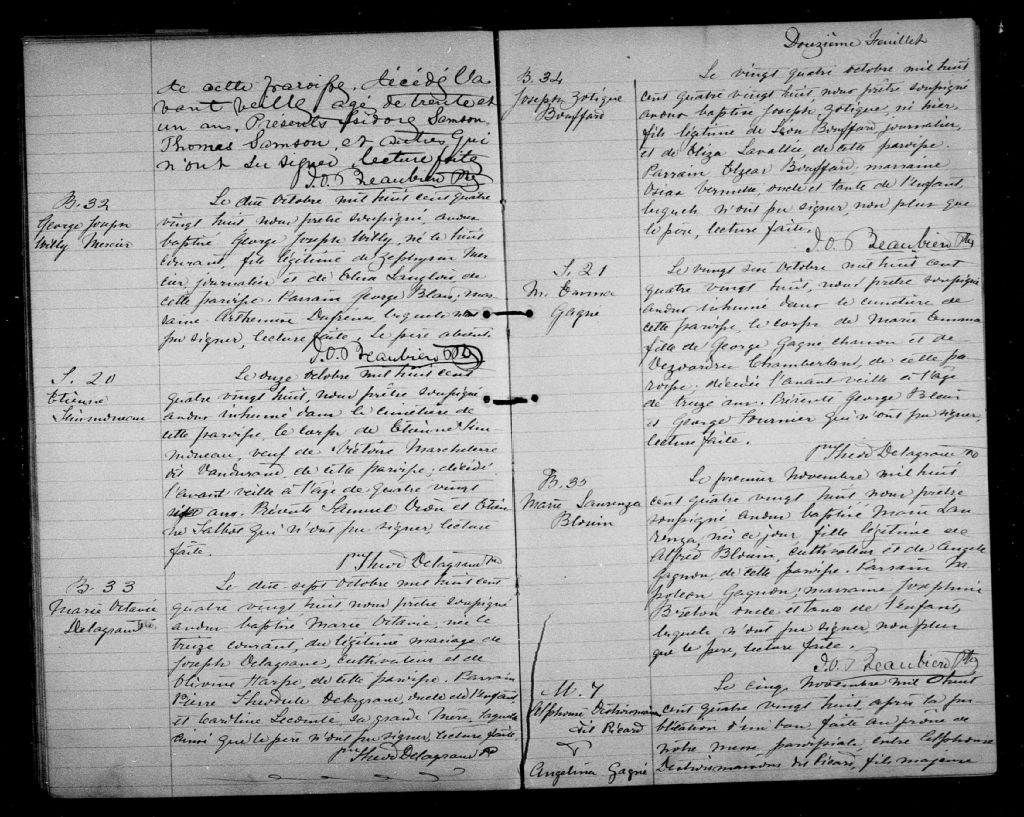 de cette paroisse, décédé l'a
vant veille agé de trente et
un ans. Présents Isidore Samson,
Thomas Samson, et autres qui
n'ont su signer, lecture faite
J.O. Beaubien Ptre
B. 32
George Joseph
Willy Mercier
Le dix Octobre mil huit cent quatre
vingt huit nous prêtre soussigné avons
baptisé George Joseph Willy, né le huit
courant, fils légitime de Zephyrin Mer
cier journalier et de Elisa Langlois de
cette paroisse. Parrain George Blais, mar
raine Arthemise Dufresne lesquels n'ont
pu signer, lecture faite. Le père absent.
J.O. Beaubien Ptre
S. 20
Etienne
Simoneau
Le onze octobre mil huit cent
quatre vingt huit, nous prêtre soussigné
avons inhumé dans le cimetière de
cette paroisse, le corps de Etienne Sim
oneau, veuf de Victoire Marcheterre
dit Vandurand de cette paroisse, décédé
l'avant veille à l'âge de quatre vingt
ans. Présents Samuel et Etien
ne Talbot qui n'ont pu signer, lecture
faite.
Théod Delagrave Ptre
B. 33
Marie Octavie
Delagrave
Le dix sept octobre mil huit cent
quatre vingt huit nous prêtre soussigné
avons baptisé Marie Octavie, née le
treize courant, du légitime mariage de
Joseph Delagrave, cultivateur et de
Olivine Harpe, de cette paroisse. Parrain
Pierre Théodule Delagrave, oncle de l'enfant
et Caroline Lecomte, sa grande mère, laquelle
ainsi que le père n'ont pu signer, lecture faite
Théod Delagrave Ptre
Douzième Feuillet
B. 34
Joseph Zotique
Bouffard
Le vingt quatre octobre mil huit
cent quatre vingt huit nous prêtre soussigné
avons baptisé Joseph Zotique, né hier,
fils légitime de Léon Bouffard journalier,
et de Eliza Lavallée de cette paroisse.
Parrain Elzear Bouffard marraine
Osias Vermette oncle et tante de l'enfant,
lesquels n'ont pu signer, non plus que
le père, lecture faite.
J.O. Beaubien Ptre
S. 21
M. Emma
Gagné
Le vingt six Octobre mil huit cent
quatre vingt huit, nous prêtre soussigné
avons inhumé dans le cimetière de
cette paroisse, le corps de Marie Emma
fille de George Gagné charron et de
Chamberland, de cette pa
roisse, décédée l'avant veille à l'âge
de treize ans. Présents George Blais
et George Fournier qui n'ont pu signer,
lecture faite.
Théod Delagrave Ptre
B. 35
Marie Laurenza
Blouin
Le premier Novembre mil huit
cent quatre vingt huit nous prêtre
soussigné avons baptisé Marie Lau
renza, née ce jour, fille légitime de
Alfred Blouin, cultivateur et de Angèle
Gagnon, de cette paroisse. Parrain Na
poléon Gagnon; marraine Josephine
Breton oncle et tante de l'enfant,
lesquels n'ont pu signer, non plus
que le père, lecture faite.
J.O. Beaubien Ptre
M. 7
Alphonse Destroismaisons
dit Picard
&
Angelina Gagné
Le cinq Novembre mil huit
cent quatre vingt huit, après la pu
blication d'un ban faite au prône de
notre messe paroissiale entre Alphonse
Destroismaisons dit Picard, fils majeur